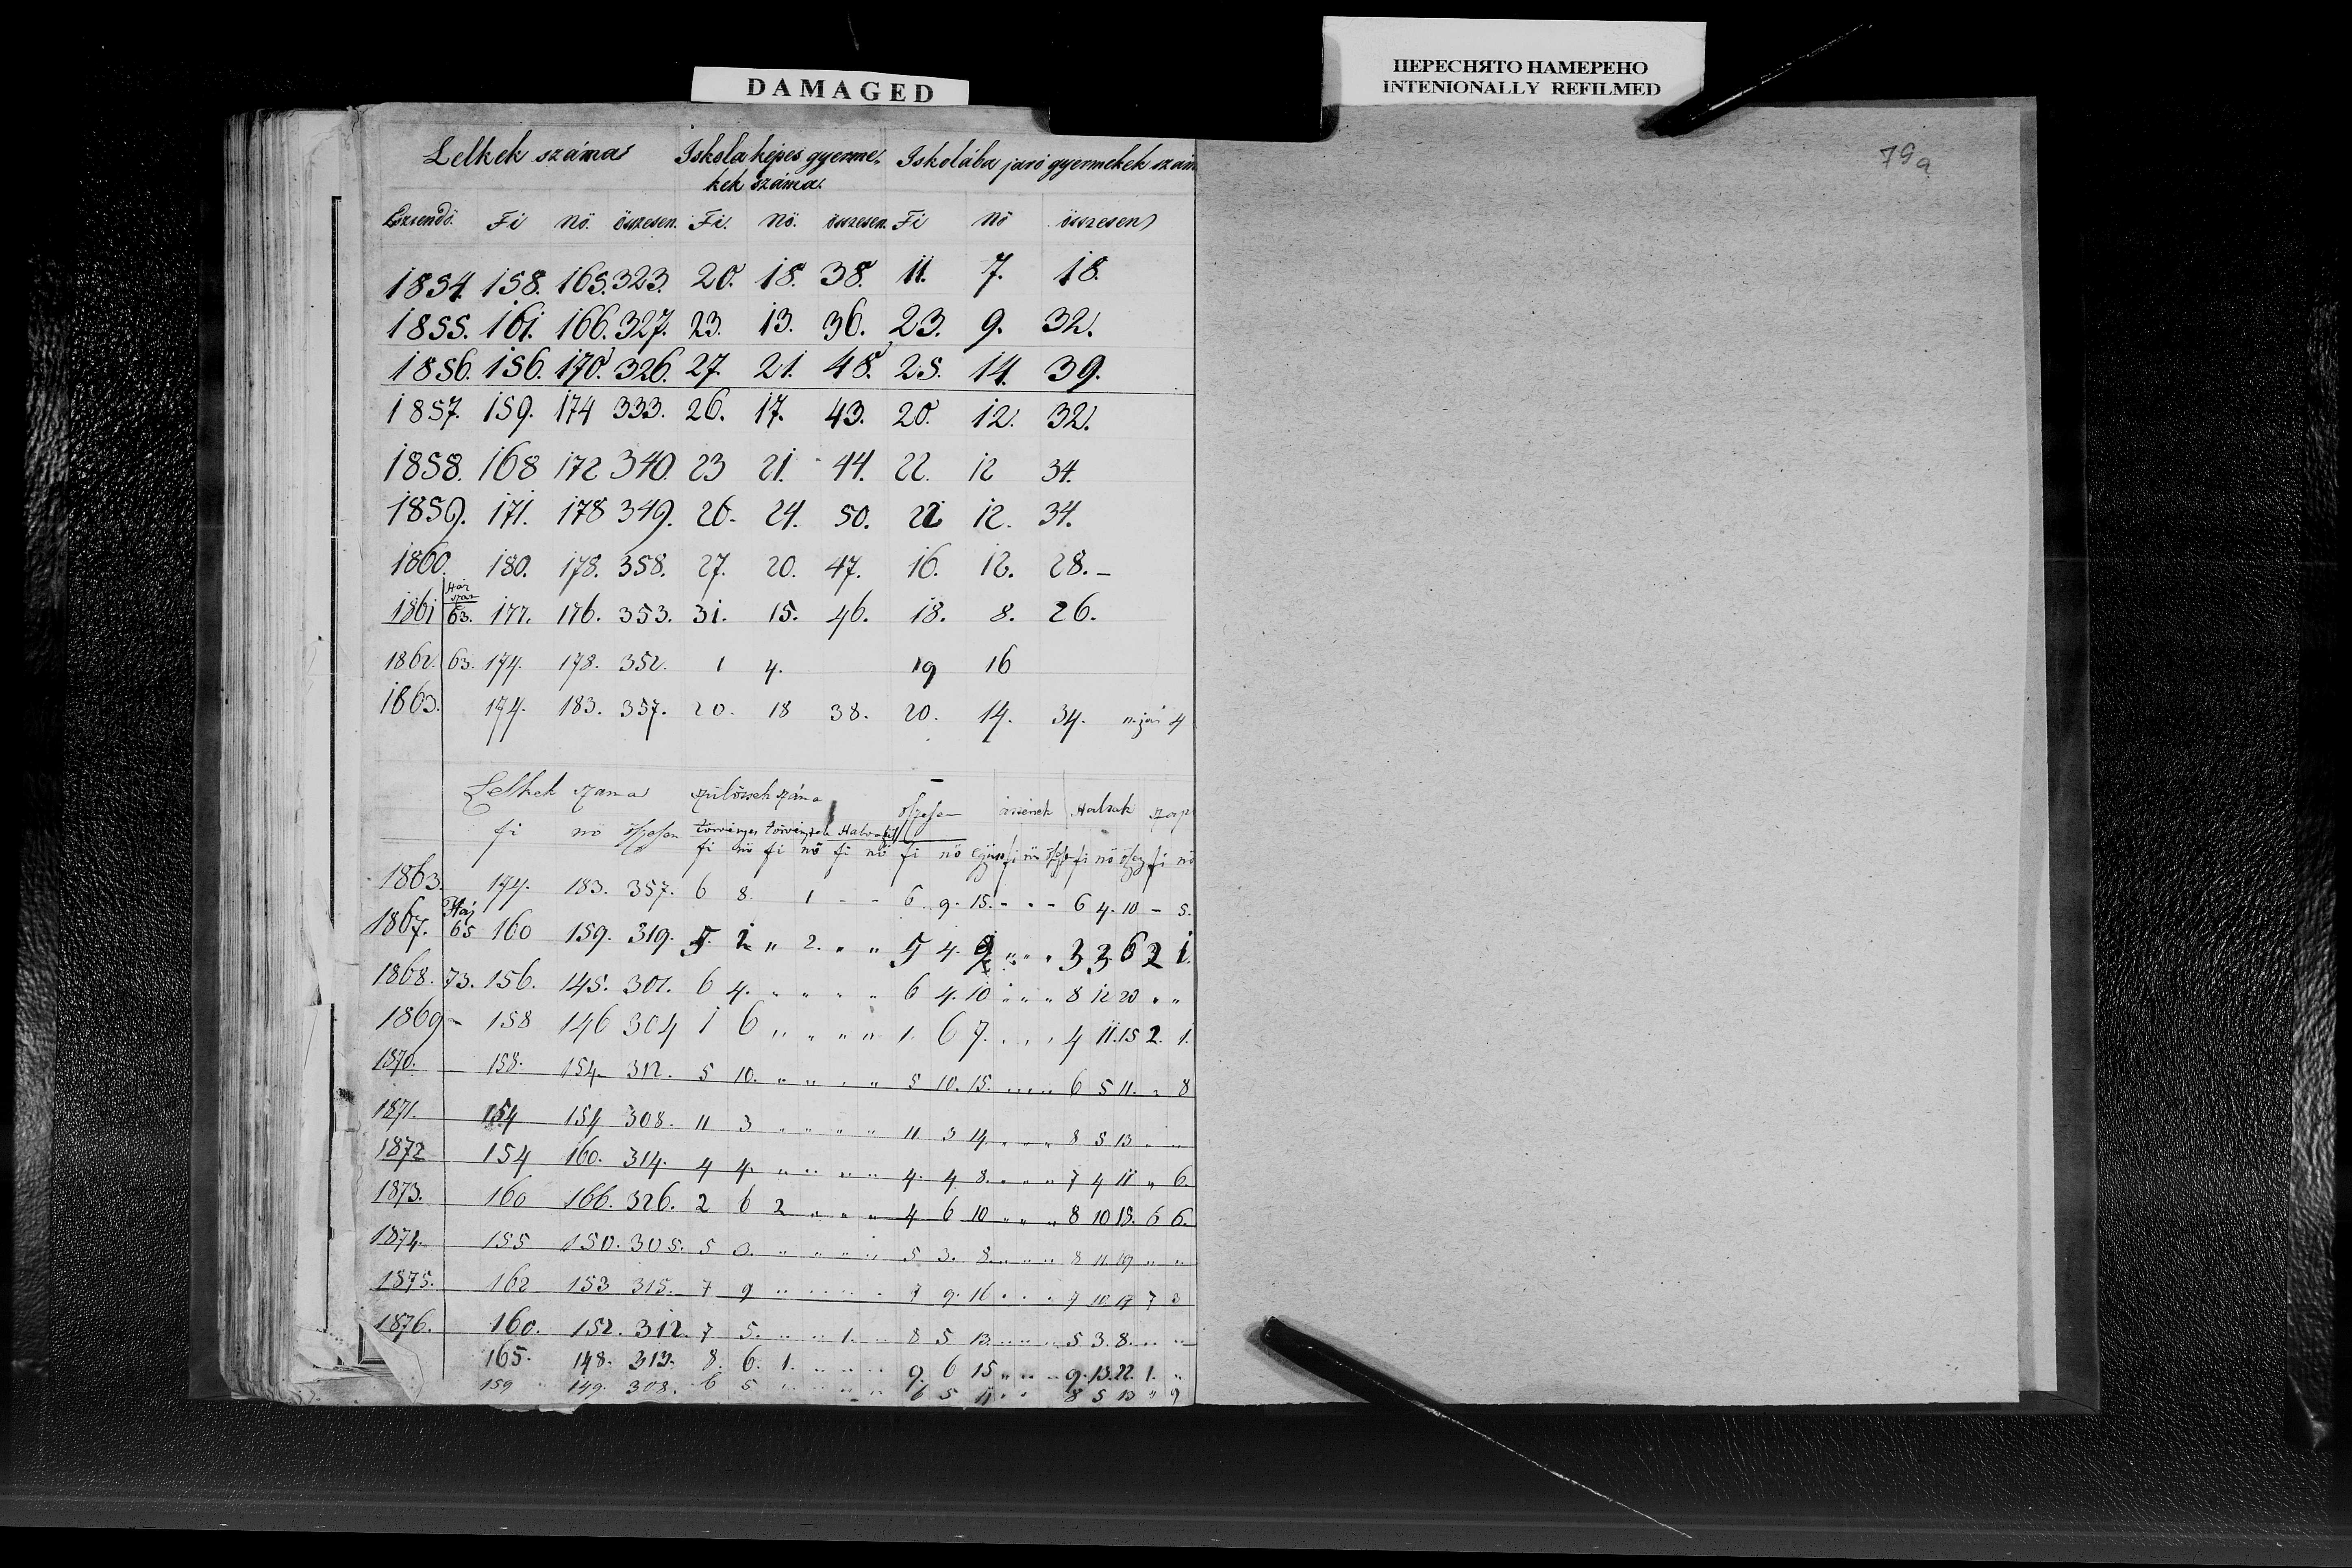 DAMAGED
ПЕРЕСНЯТО НАМЕРЕНО
INTENIONALLY REFILMED
79a
Lelkek száma Iskola képes gyerme- Iskolába járó gyermekek szám
kek száma.
Esztendő. Fi nő. összesen. Fi. nő. összesen. Fi nő összesen
1854. 158. 165. 323. 20. 18. 38. 11. 7. 18.
1855. 161. 166. 327. 23. 13. 36. 23. 9. 32.
1856. 156. 170. 326. 27. 21. 48. 25. 14. 39.
1857. 159. 174 333. 26. 17. 43. 20. 12. 32.
1858. 168 172 340. 23 21. 44. 22. 12 34.
1859. 171. 178 349. 26. 24. 50. 22 12. 34.
1860. 180. 178. 358. 27. 20. 47. 16. 12. 28. –
Ház
szám
1861 63. 177. 176. 353. 31. 15. 46. 18. 8. 26.
1862. 63. 174. 178. 352. 1 4. 19 16
1863. 174. 183. 357. 20. 18 38. 20. 14. 34. 4
Lelkek szama
fi nö
fi nö fi nö fi nö fi nö fi nö fi nö fi nö
1863. 174. 183. 357. 6 8. 1 - - 6 9. 15. - - - 6 4. 10 - 5.
Ház
1867. 65 160 159. 319. 5. 2 " 2. " " 5 4. 9 " " " 3 3 6 2 1.
1868. 73. 156. 145. 301. 6 4. " " " " 6 4. 10 " " " 8 12 20 " "
1869 – 158 146 304 1 6 " " " " 1. 6 7. " " " 4 11. 15 2. 1.
1870. 158. 154. 312. 5 10. " " " " 5 10. 15. " " " 6 5 11. " 8
1871. 154 154 308. 11 3 " " " " 11 3 14. " " " 8 5 13 " "
1872 154 160. 314. 4 4. " " " " 4. 4 8. " " " 7 4 11 " 6.
1873. 160 166. 326. 2 6 2 " " " 4 6 10 " " " 8 10 18. 6 6.
1874. 155 150. 305. 5 3. " " " " 5 3. 8. " " " 8 11. 19 " "
1875. 162 153 315. 7 9 " " " " 7 9. 16 " " " 7 10 17 7 3
1876. 160. 152. 312. 7 5. " " 1. " 8 5 13 " " " 5 3. 8. " "
165. 148. 313. 8. 6. 1. " " " 9. 6 15 " " " 9. 13. 22. 1. "
159 149. 308. 6 5 " " " " 6 5 11 " " 8 5 13 " 9